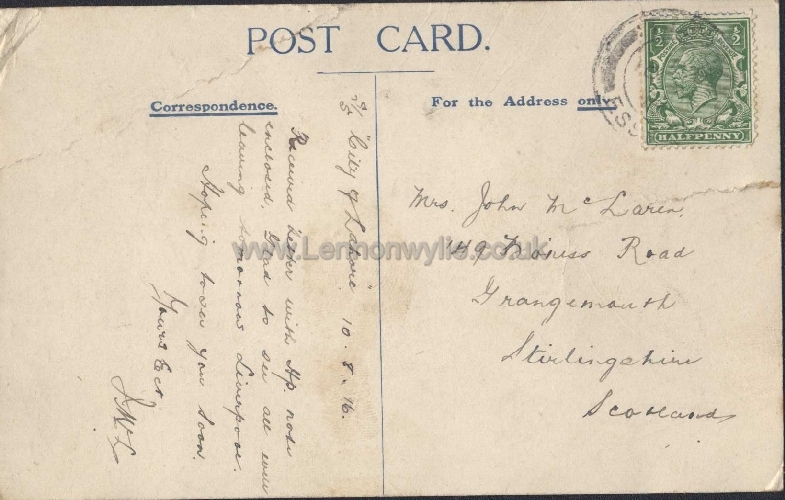 POST CARD.
Correspondence.
For the Address only.
½ ½
HALFPENNY
ESS
S/S "City of Lahore" 10.8.16.
Received letter with Hp. note
enclosed. Glad to see all well
leaving tomorrow Liverpool.
Hoping to see you soon.
Yours
J. McL
Mrs. John McLaren,
149 Boness Road
Grangemouth
Stirlingshire
Scotland
www.Lennonwylie.co.uk